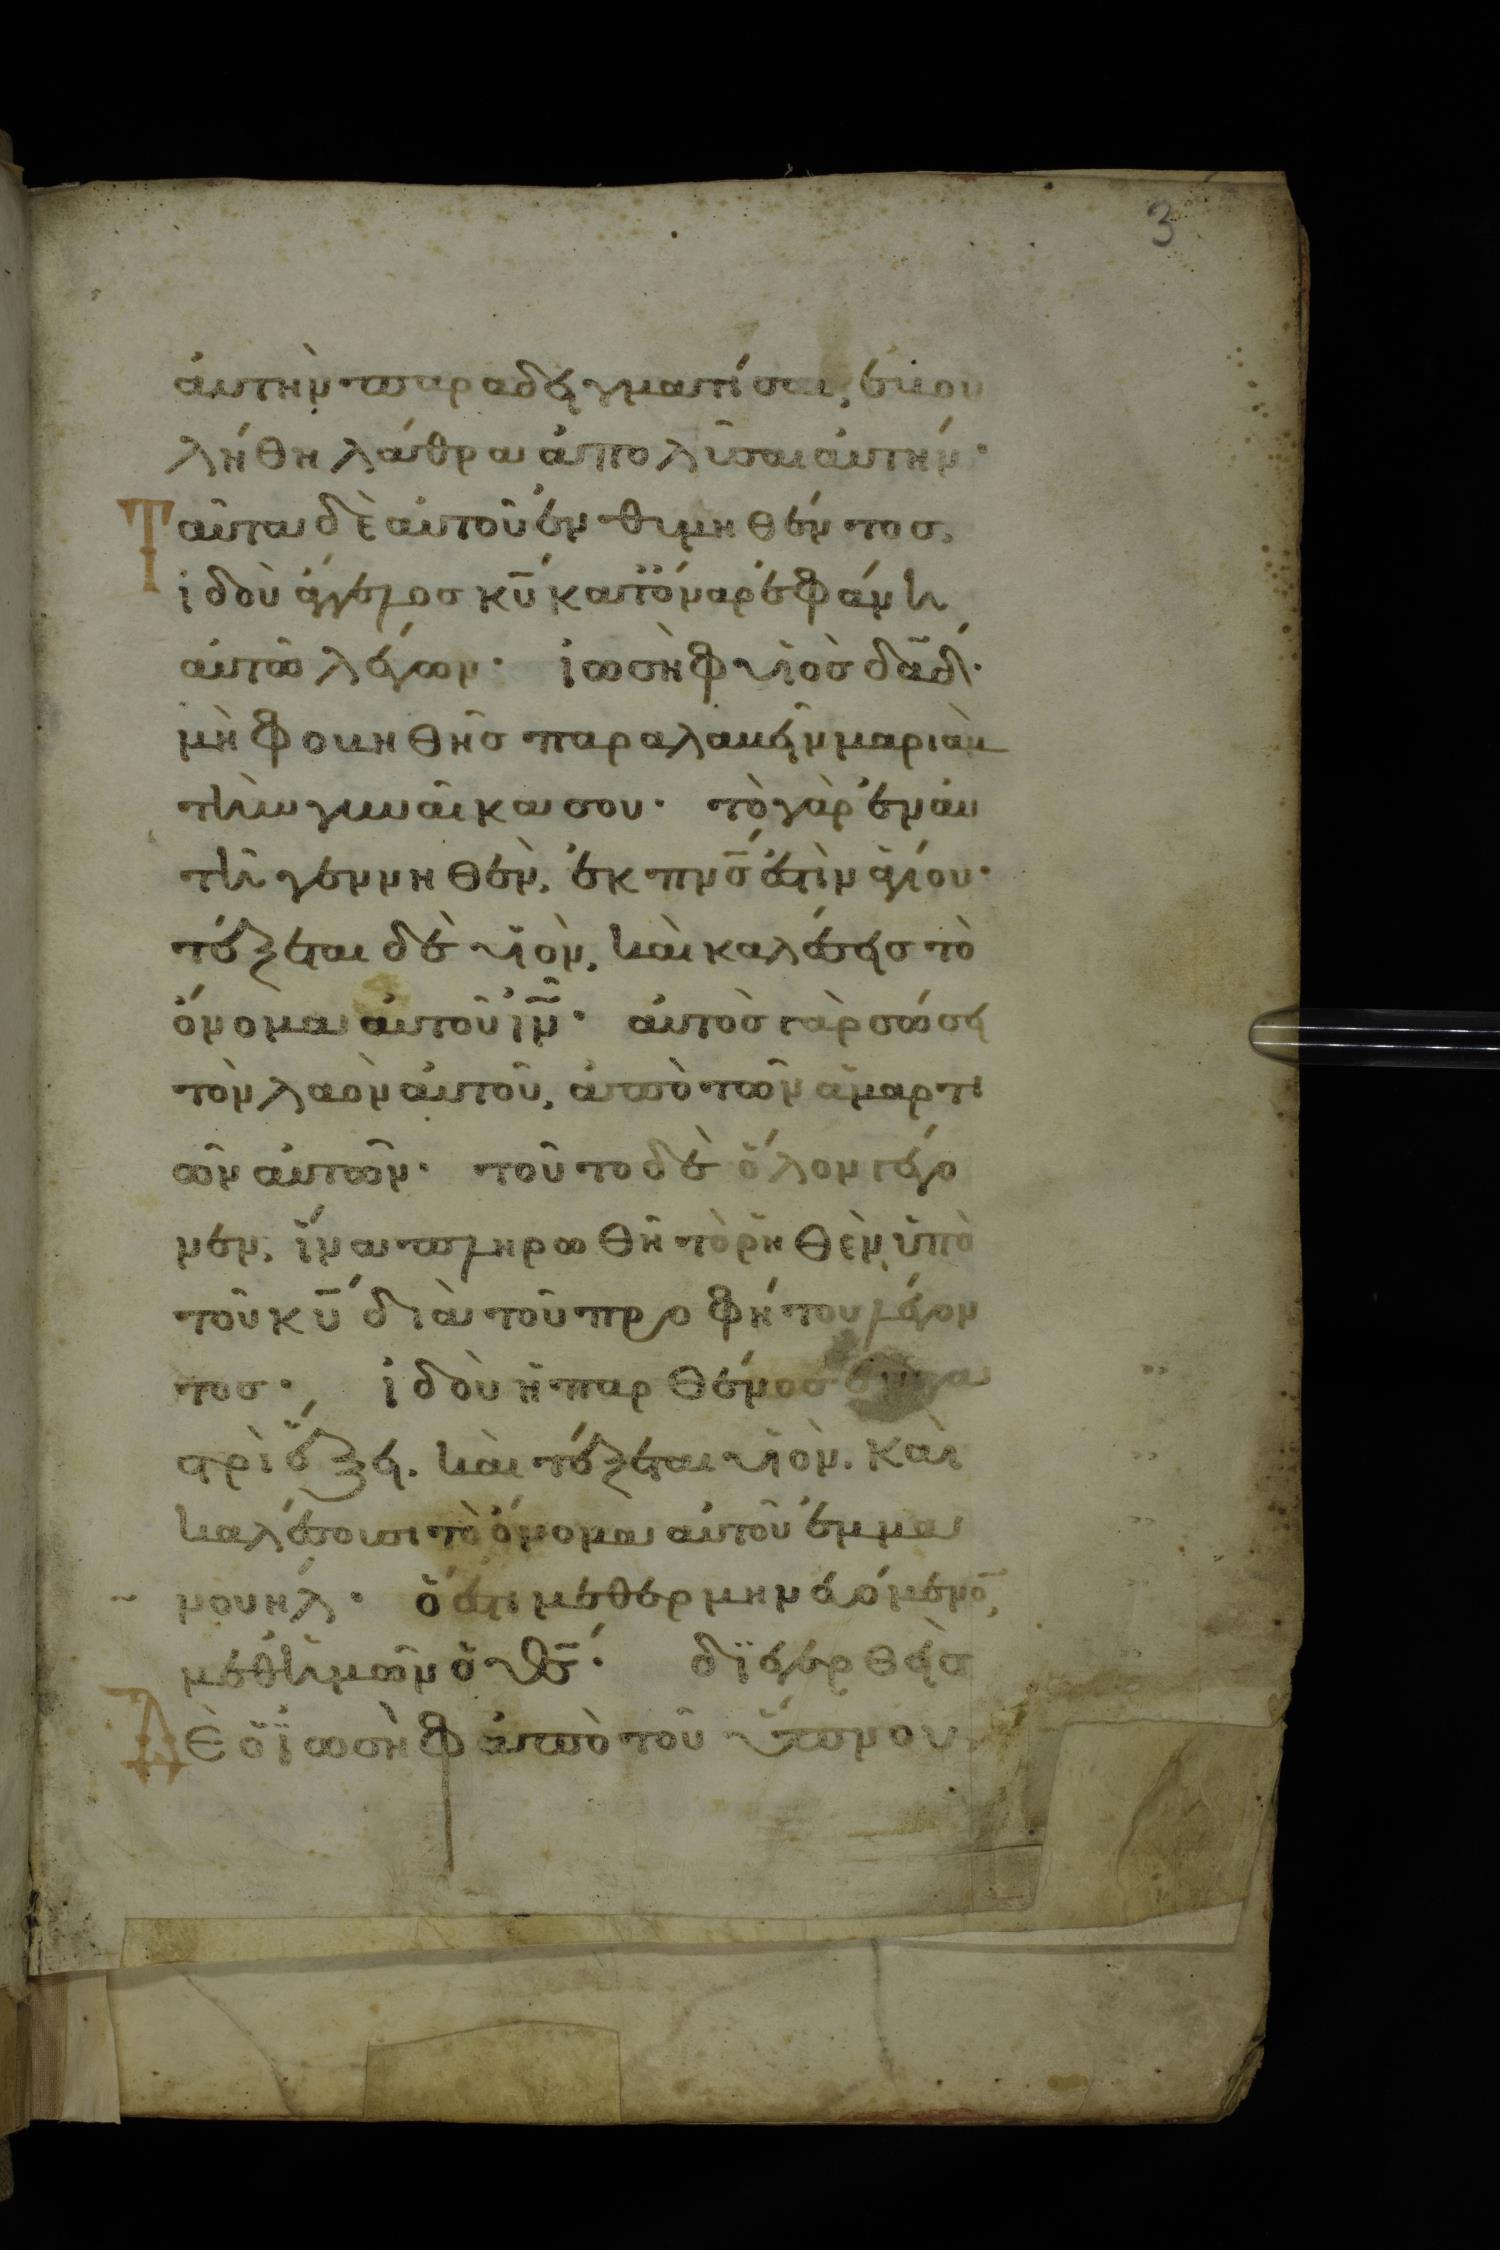 3
ἀυτὴν παραδειγματίσαι, ἐβου
λήθη λάθρα ἀπολῦσαι ἀυτήν·
Ταῦτα δὲ ἀυτοῦ ἐνθυμηθέντοσ,
ἰδοὺ ἄγγελοσ κ̅υ̅ κατόναρ ἐφάνη
ἀυτῶ λέγων· ἰωσὴφ υἱὸσ δα̅δ̅·
μὴ φοβηθῆσ παραλαβεῖν μαριὰμ
τὴν γυναῖκα σου· τὸ γὰρ ἐν αυ
τῆ γεννηθὲν, ἐκ π̅ν̅σ̅ ἐστὶν ἁγίου·
τέξεται δὲ υἱὸν, καὶ καλέσεισ τὸ
ὄνομα ἀυτοῦ ι̅ν̅· ἀυτὸσ γὰρ σώσει
τὸν λαὸν ἀυτοῦ, ἀπὸ τῶν ἁμαρτι
ῶν ἀυτῶν· τοῦτο δὲ ὅλον γέγο
νεν, ἵνα πληρωθῆ τὸ ῥηθὲν ὑπὸ
τοῦ κ̅υ̅ διὰ τοῦ προφήτου λέγον
τοσ· ἰδοὺ ἡ παρθένοσ ἐν γα
στρὶ ἕξει. καὶ τέξεται υἱὸν. καὶ
καλέσουσι τὸ ὄνομα ἀυτοῦ ἐμμα
νουήλ· ὅ ἐστι μεθερμηνευόμενο̅,
μεθ ἡμῶν ὁ θ̅σ̅· διεγερθεὶσ
Δὲ ὁ ἰωσὴφ ἀπὸ τοῦ ὕπνου